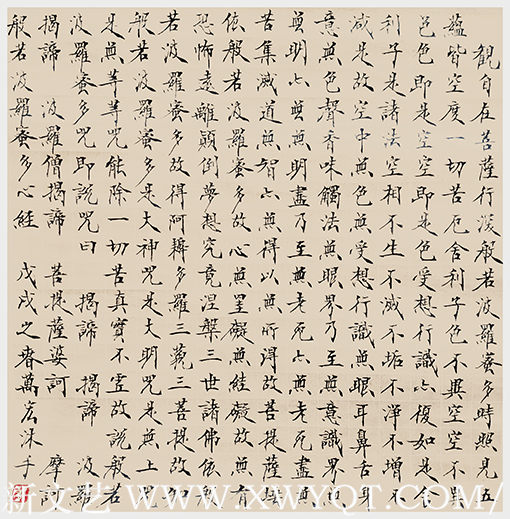 觀自在菩薩行深般若波羅蜜多時照見五
蘊皆空度一切苦厄舍利子色不異空空不異
色色即是空空即是色受想行識亦復如是舍
利子是諸法空相不生不滅不垢不淨不增不
減是故空中無色無受想行識無眼耳鼻舌身
意無色聲香味觸法無眼界乃至無意識界無
無明亦無無明盡乃至無老死亦無老死盡無
苦集滅道無智亦無得以無所得故菩提薩埵
依般若波羅蜜多故心無罣礙無罣礙故無有
恐怖遠離顛倒夢想究竟涅槃三世諸佛依般
若波羅蜜多故得阿耨多羅三藐三菩提故知
般若波羅蜜多是大神咒是大明咒是無上咒
是無等等咒能除一切苦真實不虛故說般若
波羅蜜多咒即說咒曰 揭諦 揭諦 波羅
揭諦 波羅僧揭諦 菩提薩婆訶 摩訶
般若波羅蜜多心經 戊戌之春萬宏沐手
新文艺 WWW.XWYQT.COM/